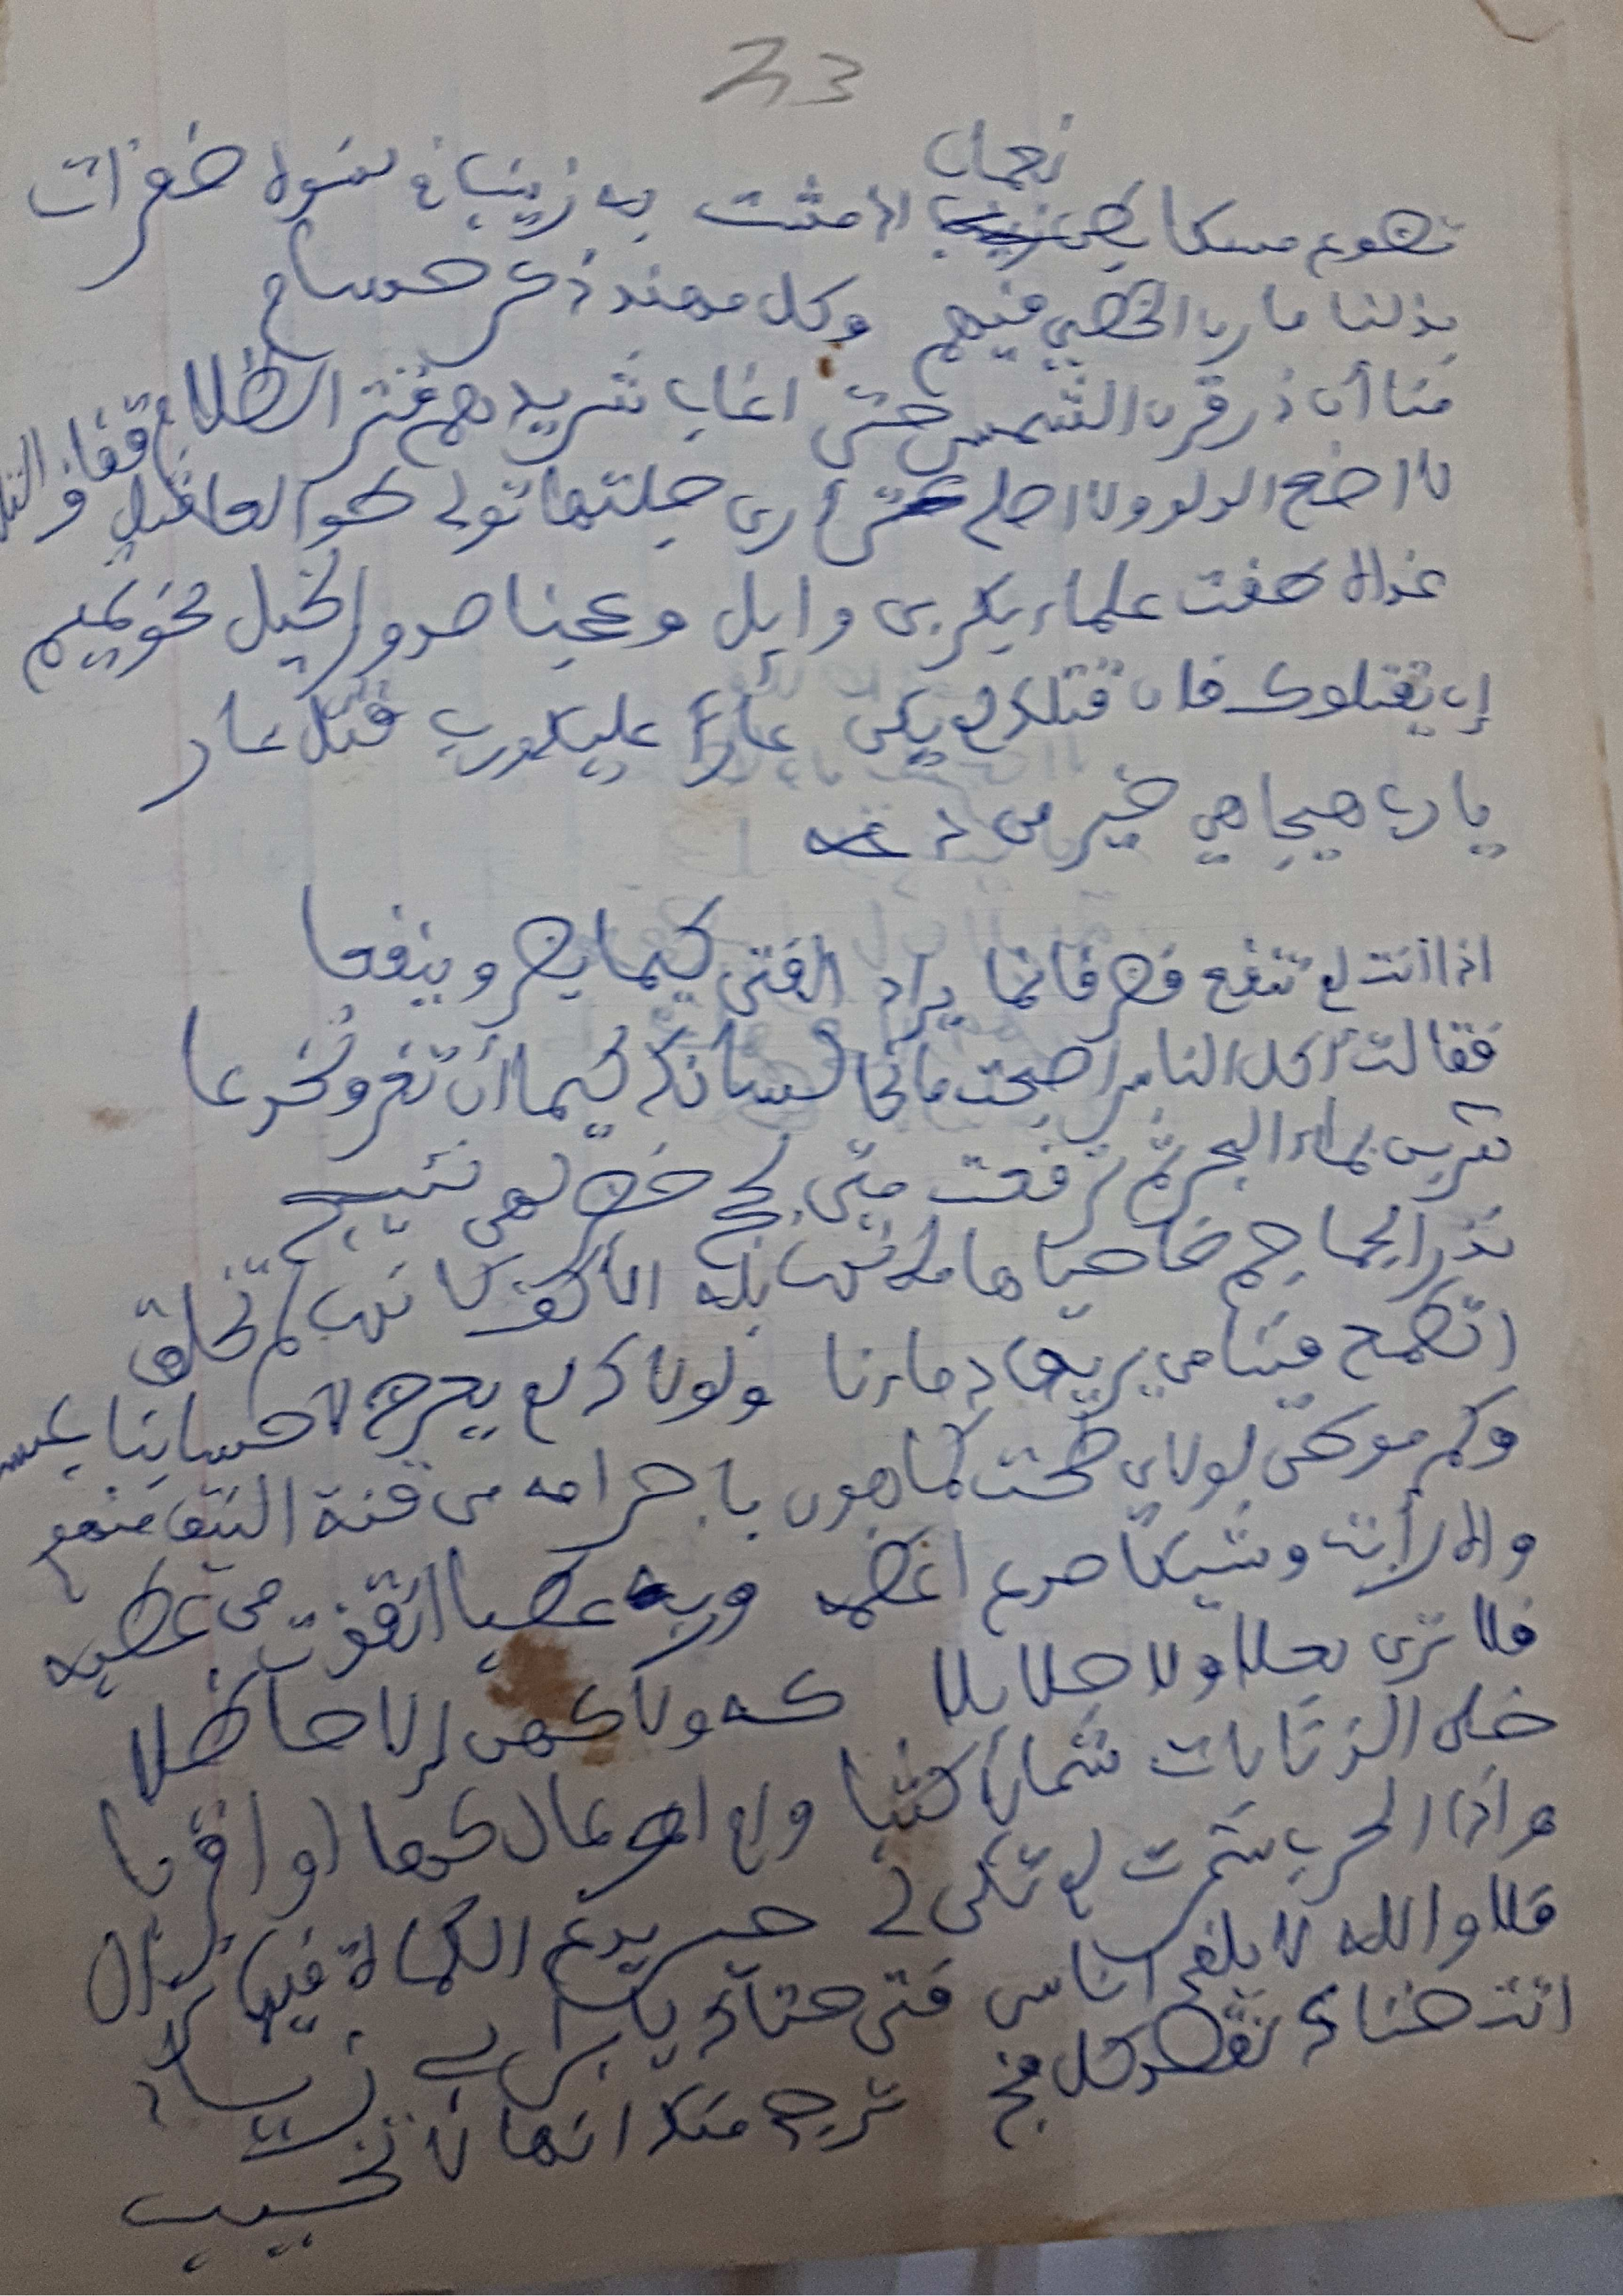 33
نعمان
تضوع مسكا بطن زينب اذ مشت به زينب في نسوة خفرات
بذلنا مارن الخطي فيهم وكل مهند ذكر حسام
منا أن ذر قرن الشمس حتى اغاب شريدهم فتر الظلام
لا اضع الدلو ولا اصلي حتى أرى جلتها تولي صوادرا
غداة طفت علماء بكر بن وايل وعجنا صدور الخيل نحو تميم
إن يقتلوك فان قتلك لم يكن عارا عليك ورب قتل عار
يا رب هيجا هي خير من دعه
اذا انت لم تنفع فضر فانما يراد الفتى كيما يضر وينفعا
فقالت أكل الناس اصبحت مانحا لسانك كيما أن تغر وتخدعا
شربن بماء البحر ثم ترفعت متى لجج خضر لهن نئيج
تذر الجماجم ضاحيا هاماتها بله الأكف كانها لم تخلق
اتطمع فينا من يريق دماءنا ولولاك لم يعرض لاحسابنا
وكم موطن لولاي طحت كما هوى باجرامه من قنة النيق منهوي
واه رأبت وشيكا صدع اعظمه وربه عطبا انقذت من عطبه
فلا ترى بعلا ولا حلايلا كه ولا كهن الا حاظلا
خلى الذنابات شمالا كثبا وام اوعال كها او اقربا
واذا الحرب شمرت لم تكن كي حين يدعو الكماة فيها نزال
فلا والله لا يلفي اناس فتى حتاك يا بن ابي زياد
اتت حتاك تقصد كل فج ترجي منك انها لا تخيب